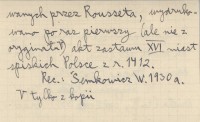 wanych przez Rousseta, wydruko-
wano po raz pierwszy (ale nie z
oryginału) akt zastawu XVI miast
spiskich Polsce z r. 1412.
Rec.: Semkowicz W. 1930 a.
V tylko z kopii